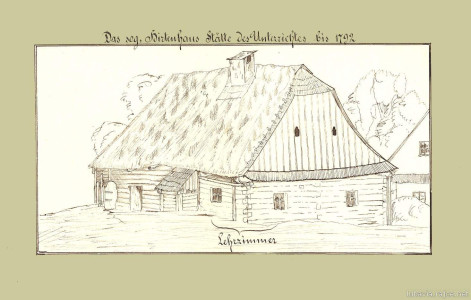 Das sog. Hirtenhaus Stätte des Unterrichtes bis 1792
Lehrzimmer